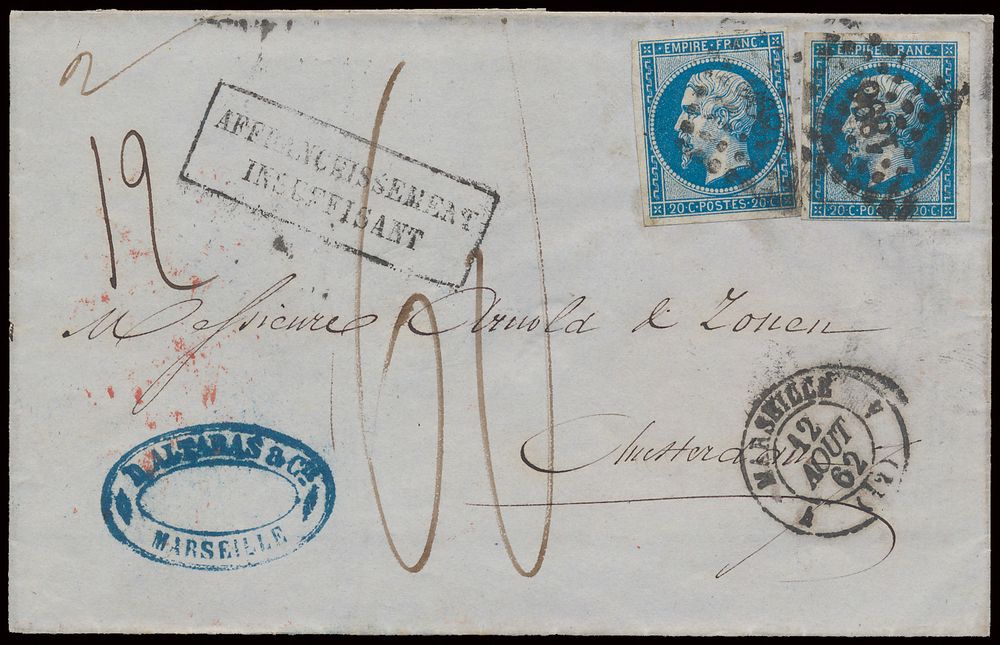 2
EMPIRE·FRANC·
20·C·POSTES·20·C·
EMPIRE·FRANC·
20·C·POSTES·20·C·
AFFRANCHISSEMENT
INSUFFISANT
12
60
Messieurs Arnold & Zonen
Amsterdam
MARSEILLE
12
AOUT
62
(12)
D. ALTARAS & Cie
MARSEILLE